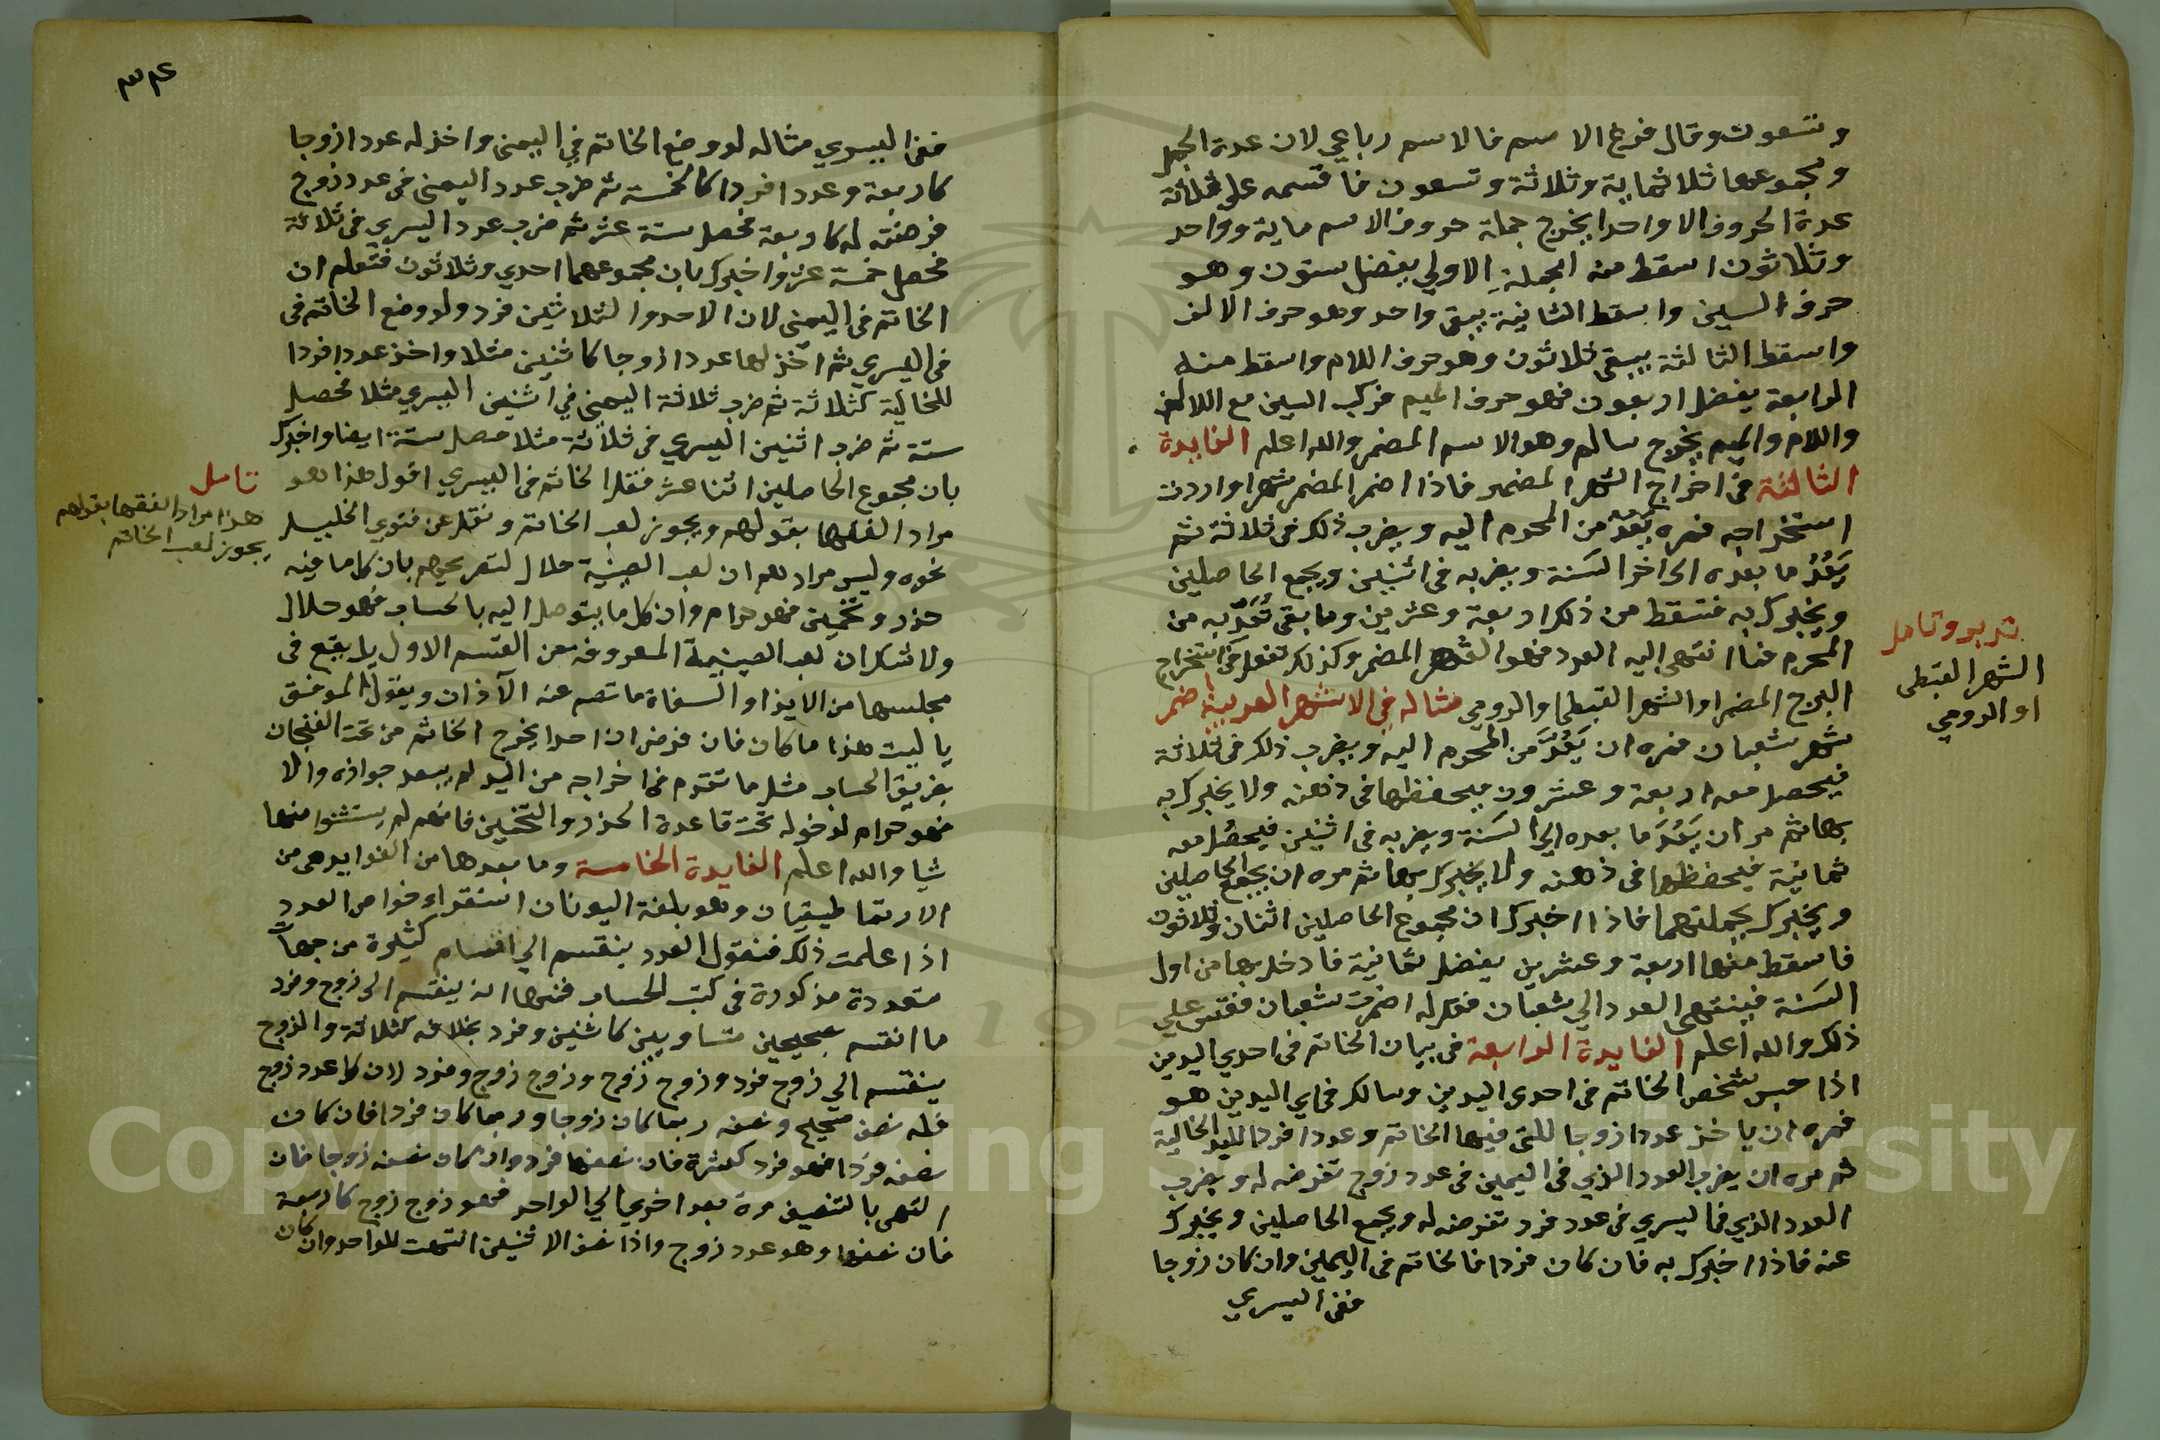 وتسعون وقال فرغ الاسم فالاسم رباعي لان عدة الجمل
ومجموعها ثلاثماية وثلاثة وتسعون فاقسمه على ثلاثة
عدة الحروف الا واحدا يخرج جملة حروف الاسم ماية وواحد
وثلاثون اسقط منه الجملة الاولي يفضل ستون وهو
حرف السين واسقط الثانية يبقى واحد وهو حرف الالف
واسقط الثالثة يبقى ثلاثون وهو حرف اللام واسقط منه
الرابعة يفضل اربعون فهو حرف الميم فركب السين مع الالف
واللام والميم يخرج سالم وهو الاسم المضمر والله اعلم الفايدة
الثالثة في اخراج الشهر المضمر فاذا اضمر المضمر شهرا واردت
استخراجه فمره يَعُدّ من المحرم اليه ويضرب ذلك في ثلاثة ثم
يَعُدُ ما بعده الى اخر السَنة ويضربه في اثنين ويجمع الحاصلين
ويخبرك به فتسقط من ذلك اربعة وعشرين وما بقى تُعَدّ به من
المحرم فما انتهى اليه العدد فهو الشهر المضمر وكذلك تفعل في استخراج
البرج المضمر او الشهر القبطي او الرومي مثاله في الاشهر العربية اضمر
شهر شعبان فمره ان يَعُدَّ من المحرم اليه ويضرب ذلك في ثلاثة
فيحصل معه اربعة وعشرون يحفظها في ذهنه ولا يخبرك به
بها ثم مر ان يَعُدَّ ما بعده الي السَنة ويضربه في اثنين فيحصُل معه
ثمانية فيحفظها في ذهنه ولا يخبرك بها ثم مره ان يجمع الحاصلين
ويخبرك بجملتهما فاذا اخبرك ان مجموع الحاصلين اثنان وثلاثون
فاسقط منها اربعة وعشرين يفضل ثمانية فادخل بها من اول
السَنة فينتهى العدد الي شعبان فقل له اضمرت شعبان فقس علي
ذلك والله اعلم الفايدة الرابعة في بيان الخاتم في احدي اليدين
اذا حبس شخص الخاتم في احدى اليدين وسالك في اي اليدين هو
فمره ان ياخذ عددا زوجا للتي فيها الخاتم وعددا فردا لليد الخالية
ثم مره ان يضرب العدد الذي في اليمين في عدد زوج تفرضه له ويضرب
العدد الذي في اليسري في عدد فرد تفرضه له ويجمع الحاصلين ويخبرك
عنه فاذا اخبرك به فان كان فردا فالخاتم في اليمين وان كان زوجا
ففي اليسري
تدبر وتامل
الشهر القبطي
او الرومي
٣٤
ففي اليسري مثاله لو وضع الخاتم في اليمنى واخذ له عددا زوجا
كاربعة وعددا فردا كالخمسة ثم ضرب عدد اليمنى في عدد زوج
فرضته له كاربعة فحصل ستة عشر ثم ضرب عدد اليسري في ثلاثة
فحصل خمسة عشر واخبرك بان مجموعهما احدي وثلاثون فتعلم ان
الخاتم في اليمنى لان الاحد والثلاثين فرد ولو وضع الخاتم في
في اليسري ثم اخذ لها عددا زوجا كاثنين مثلا واخذ عددا فردا
للخالية كثلاثة ثم ضرب ثلاثة اليمنى في اثنين اليسري مثلا فحصل
ستة ثم ضرب اثنين اليسري في ثلاثة مثلا حصل ستة ايضا واخبرك
بان مجموع الحاصلين اثنا عشر فقل الخاتم في اليسري اقول هذا هو
مراد الفقها بقولهم ويجوز لعب الخاتم ونقل عن فتوي الخليل
نحوه وليس مرادهم ان لعب الصينية حلال لتصريحهم بان كل ما فيه
حزر وتخمين فهو حرام وان كل ما يتوصل اليه بالحساب فهو حلال
ولا شك ان لعب الصينية المعروفة من القسم الاول بل يقع في
مجلسها من الايذا والسفاة ما تصم عنه الآذان ويقول الموفق
يا ليت هذا ما كان فان فرض ان احدا يخرج الخاتم من تحت الفنجان
بطريق الحساب مثل ما تقدم في اخراجه من اليد لم يبعد جوازه والا
فهو حرام لدخوله تحت قاعدة الحزر والتخمين فانهم لم يستثنوا منها
شيا والله اعلم الفايدة الخامسة وما بعدها من الفوايد هى من
الارتماطيقيان وهو بلغة اليونان استقراء خواص العدد
اذا علمت ذلك فنقول العدد ينقسم الي اقسام كثيرة من جهات
متعددة مذكورة في كتب الحساب فمنها انه ينقسم الى زوج وفرد
ما انقسم بصحيحين متساويين كاثنين وفرد بخلافه كثلاثة والزوج
ينقسم الي زوج فرد وزوج زوج وزوج زوج وفرد لان كل عدد زوج
فله نصف صحيح ونصفه ربما كان زوجا وربما كان فردا فان كان
نصفه فردا فهو فرد كعشرة فان نصفها فرد وان كان نصفه زوجا فان
انتهى بالتنصيف مرة بعد اخري الي الواحد فهو زوج زوج كاربعة
فان نصفها وهو عدد زوج واذا نصف الاثنين انتهت للواحد وان كان
تامل
هذا مراد الفقها بقولهم
يجوز لعب الخاتم
Copyright © King Saud University
195